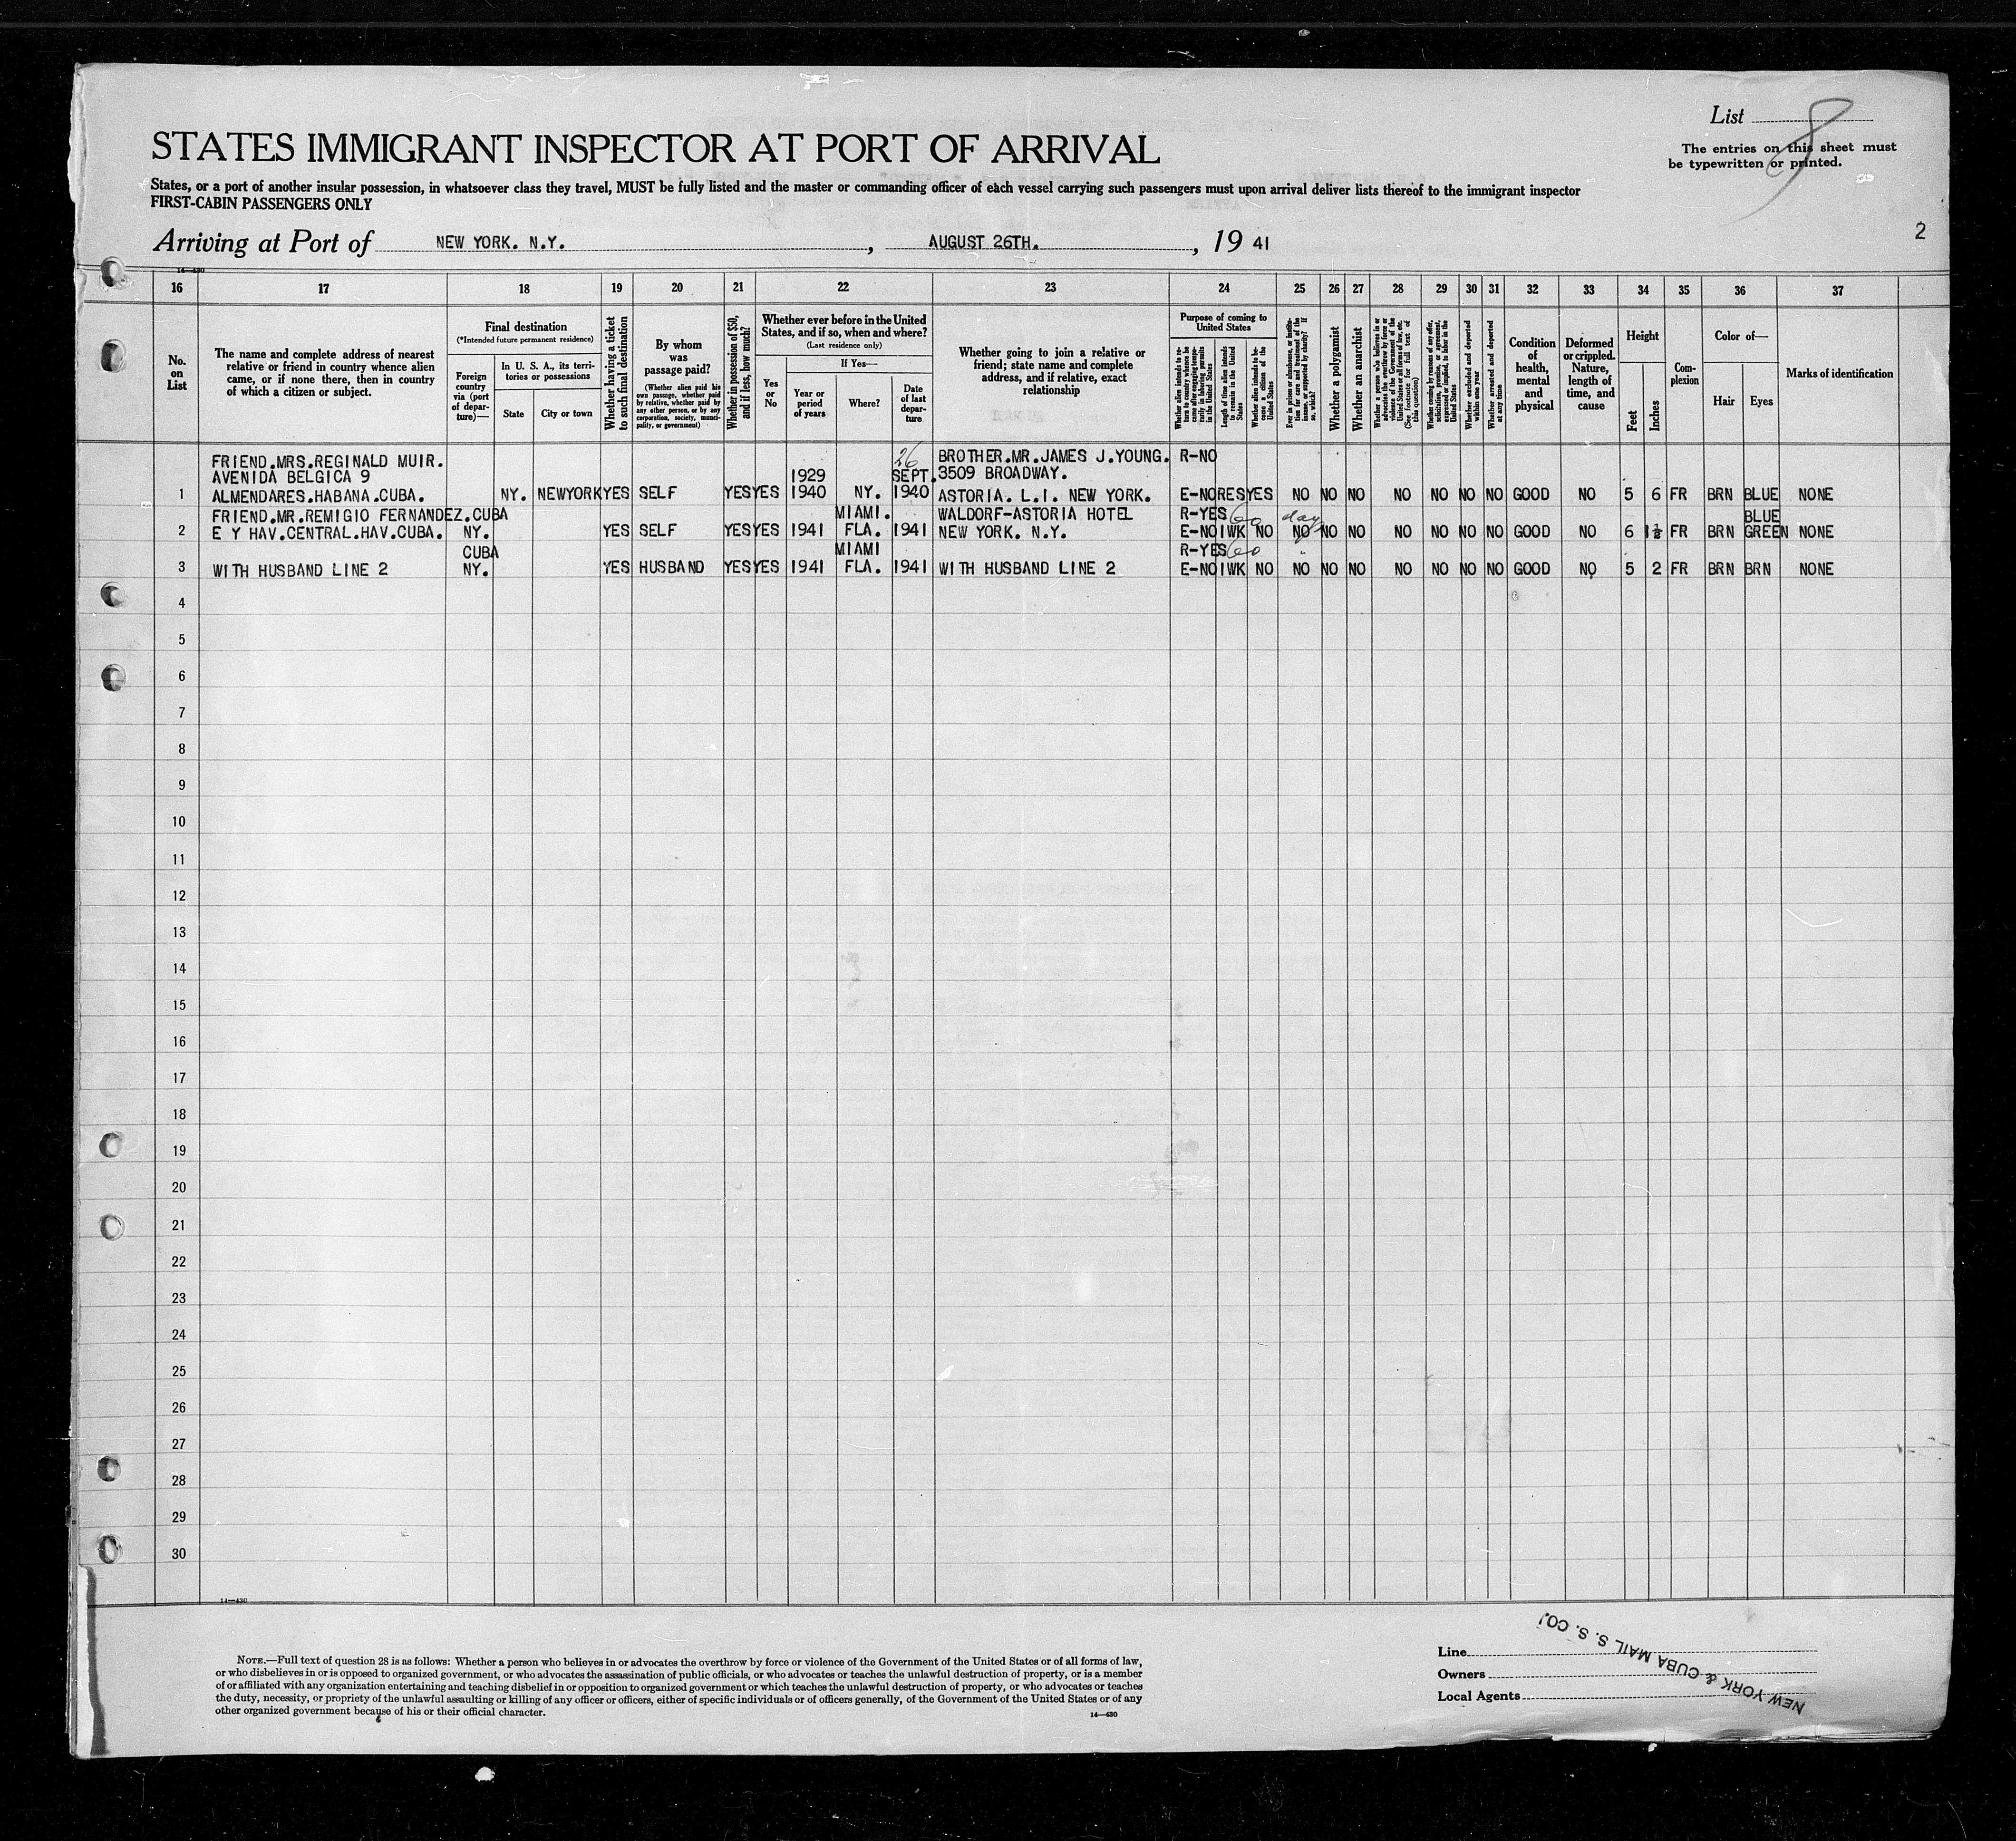 List 8
The entries on this sheet must
be typewritten or printed.
STATES IMMIGRANT INSPECTOR AT PORT OF ARRIVAL
States, or a port of another insular possession, in whatsoever class they travel, MUST be fully listed and the master or commanding officer of each vessel carrying such passengers must upon arrival deliver lists thereof to the immigrant inspector
FIRST-CABIN PASSENGERS ONLY
Arriving at Port of NEW YORK. N.Y. , AUGUST 26TH. , 19 41
2
14—430
16 17 18 19 20 21 22 23 24 25 26 27 28 29 30 31 32 33 34 35 36 37
No. on List
The name and complete address of nearest relative or friend in country whence alien came, or if none there, then in country of which a citizen or subject.
Final destination
(*Intended future permanent residence)
Foreign country via (port of departure)—
In U. S. A., its territories or possessions
State
City or town
Whether having a ticket to such final destination
By whom was passage paid?
(Whether alien paid his own passage, whether paid by relative, whether paid by any other person, or by any corporation, society, municipality, or government)
Whether in possession of $50, and if less, how much?
Whether ever before in the United States, and if so, when and where?
(Last residence only)
Yes or No
If Yes—
Year or period of years
Where?
Date of last departure
Whether going to join a relative or friend; state name and complete address, and if relative, exact relationship
Purpose of coming to United States
Whether alien intends to return to country whence he came after engaging temporarily in laboring pursuits in the United States
Length of time alien intends to remain in the United States
Whether alien intends to become a citizen of the United States
Ever in prison or almshouse, or institution for care and treatment of the insane, or supported by charity? If so, which?
Whether a polygamist
Whether an anarchist
Whether a person who believes in or advocates the overthrow by force or violence of the Government of the United States or all forms of law, etc. (See footnote for full text of this question)
Whether coming by reason of any offer, solicitation, promise, or agreement, expressed or implied, to labor in the United States
Whether excluded and deported within one year
Whether arrested and deported at any time
Condition of health, mental and physical
Deformed or crippled. Nature, length of time, and cause
Height
Feet
Inches
Complexion
Color of—
Hair
Eyes
Marks of identification
FRIEND.MRS.REGINALD MUIR. 26 BROTHER.MR.JAMES J.YOUNG. R-NO
AVENIDA BELGICA 9 1929 SEPT. 3509 BROADWAY.
1 ALMENDARES.HABANA.CUBA. NY. NEWYORK YES SELF YES YES 1940 NY. 1940 ASTORIA. L.I. NEW YORK. E-NO RES YES NO NO NO NO NO NO NO GOOD NO 5 6 FR BRN BLUE NONE
FRIEND.MR.REMIGIO FERNANDEZ.CUBA MIAMI. WALDORF-ASTORIA HOTEL R-YES 60 days BLUE
2 E Y HAV.CENTRAL.HAV.CUBA. NY. YES SELF YES YES 1941 FLA. 1941 NEW YORK. N.Y. E-NO 1WK NO NO NO NO NO NO NO NO GOOD NO 6 1½ FR BRN GREEN NONE
CUBA MIAMI R-YES 60 "
3 WITH HUSBAND LINE 2 NY. YES HUSBAND YES YES 1941 FLA. 1941 WITH HUSBAND LINE 2 E-NO 1WK NO NO NO NO NO NO NO NO GOOD NO 5 2 FR BRN BRN NONE
4
5
6
7
8
9
10
11
12
13
14
15
16
17
18
19
20
21
22
23
24
25
26
27
28
29
30
14—430
NOTE.—Full text of question 28 is as follows: Whether a person who believes in or advocates the overthrow by force or violence of the Government of the United States or of all forms of law,
or who disbelieves in or is opposed to organized government, or who advocates the assassination of public officials, or who advocates or teaches the unlawful destruction of property, or is a member
of or affiliated with any organization entertaining and teaching disbelief in or opposition to organized government or which teaches the unlawful destruction of property, or who advocates or teaches
the duty, necessity, or propriety of the unlawful assaulting or killing of any officer or officers, either of specific individuals or of officers generally, of the Government of the United States or of any
other organized government because of his or their official character.
14—430
Line
Owners
Local Agents
NEW YORK & CUBA MAIL S. S. CO.